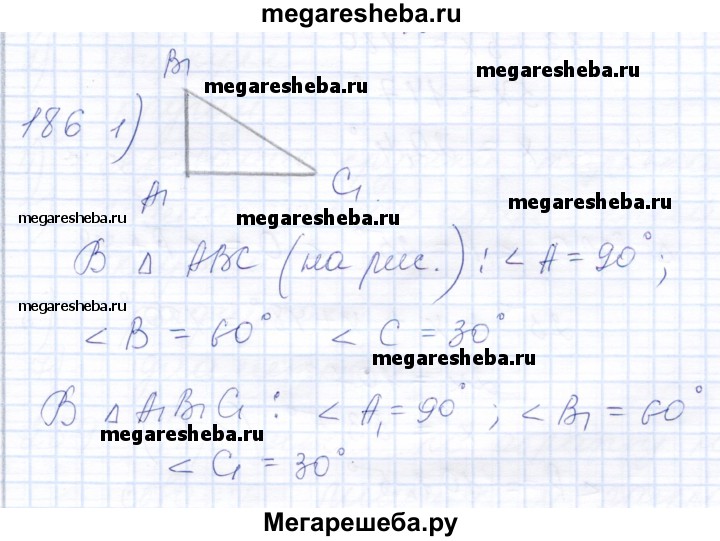 megaresheba.ru
B₁
megaresheba.ru
megaresheba.ru
186 1)
A₁
C₁
megaresheba.ru
megaresheba.ru
megaresheba.ru
В Δ ABC (на рис.) : < A = 90°;
megaresheba.ru
< B = 60° < C = 30°
megaresheba.ru
В Δ A₁B₁C₁ : < A₁ = 90° ; < B₁ = 60°
megaresheba.ru
< C₁ = 30°
Мегарешеба.ру